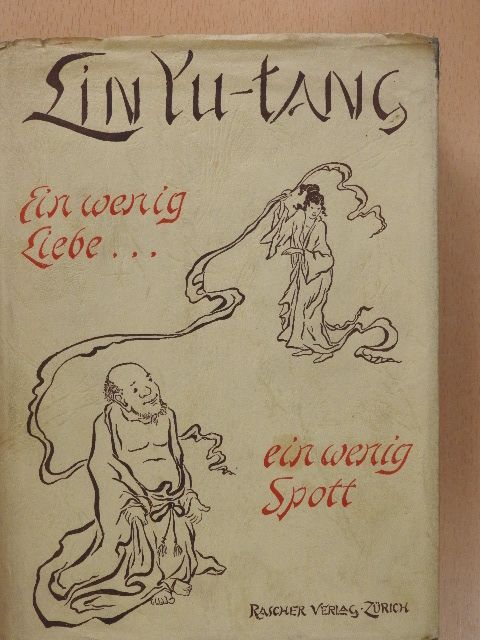 Lin Yu-tang
Ein wenig
Liebe...
ein wenig
Spott
RASCHER VERLAG · ZÜRICH